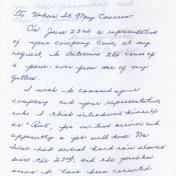 To Whom It May Concern:
On June 23rd a representative
of your company came at my
request and determine the cause of
a pour over from one of my
gutters.
I wish to commend your
company and your representative,
who I think introduced himself
as "Rich", for our kind service and
apparently a job well done. We
have had several hard rain showers
since the 23rd, and the problem
seems to have been corrected